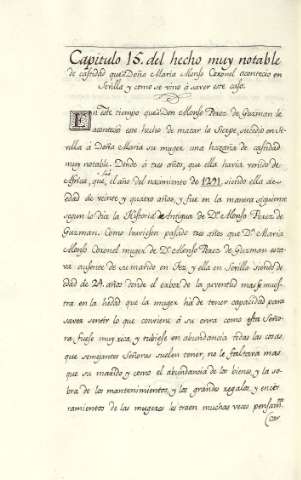 Capitulo 15. del hecho muy notable
de castidad que Doña Maria Alonso Coronel acontecio en
Sevilla y como se vino a saver este caso.
En este tiempo que Don Alonso Perez de Guzman le
acontecio este hecho de matar la Sierpe, sucedio en Sevi
lla á Doña Maria su muger una hazaña de castidad
muy notable. Desde á tres años, que ella havia venido de
Africa, que fué el año del nacimiento de 1291, siendo ella de
edad de veinte y quatro años, y fue en la manera siguiente
segun lo dice la Historia Antigua de Dn Alonso Perez de
Guzman. Como huviesen pasado tres años que Da Maria
Alonso Coronel muger de Dn Alonso Perez de Guzman estu
viese ausente de su marido en Fez, y ella en Sevilla siendo de he
dad de 24 años donde el exbor de la juventud mas se mues
tra en la hedad que la muger ha de tener capacidad para
saver sentir lo que conviene á su onra como esta Seño
ra fuese muy rica, y tubiese en abundancia todas las cosas,
que semejantes Señoras suelen tener, no le faltava mas
que su marido y como el abundancia de los bienes y la so
bra de los mantenimientos y los grandes regalos, y encer
ramientos de las mugeres les traen muchas veces pensam.tos